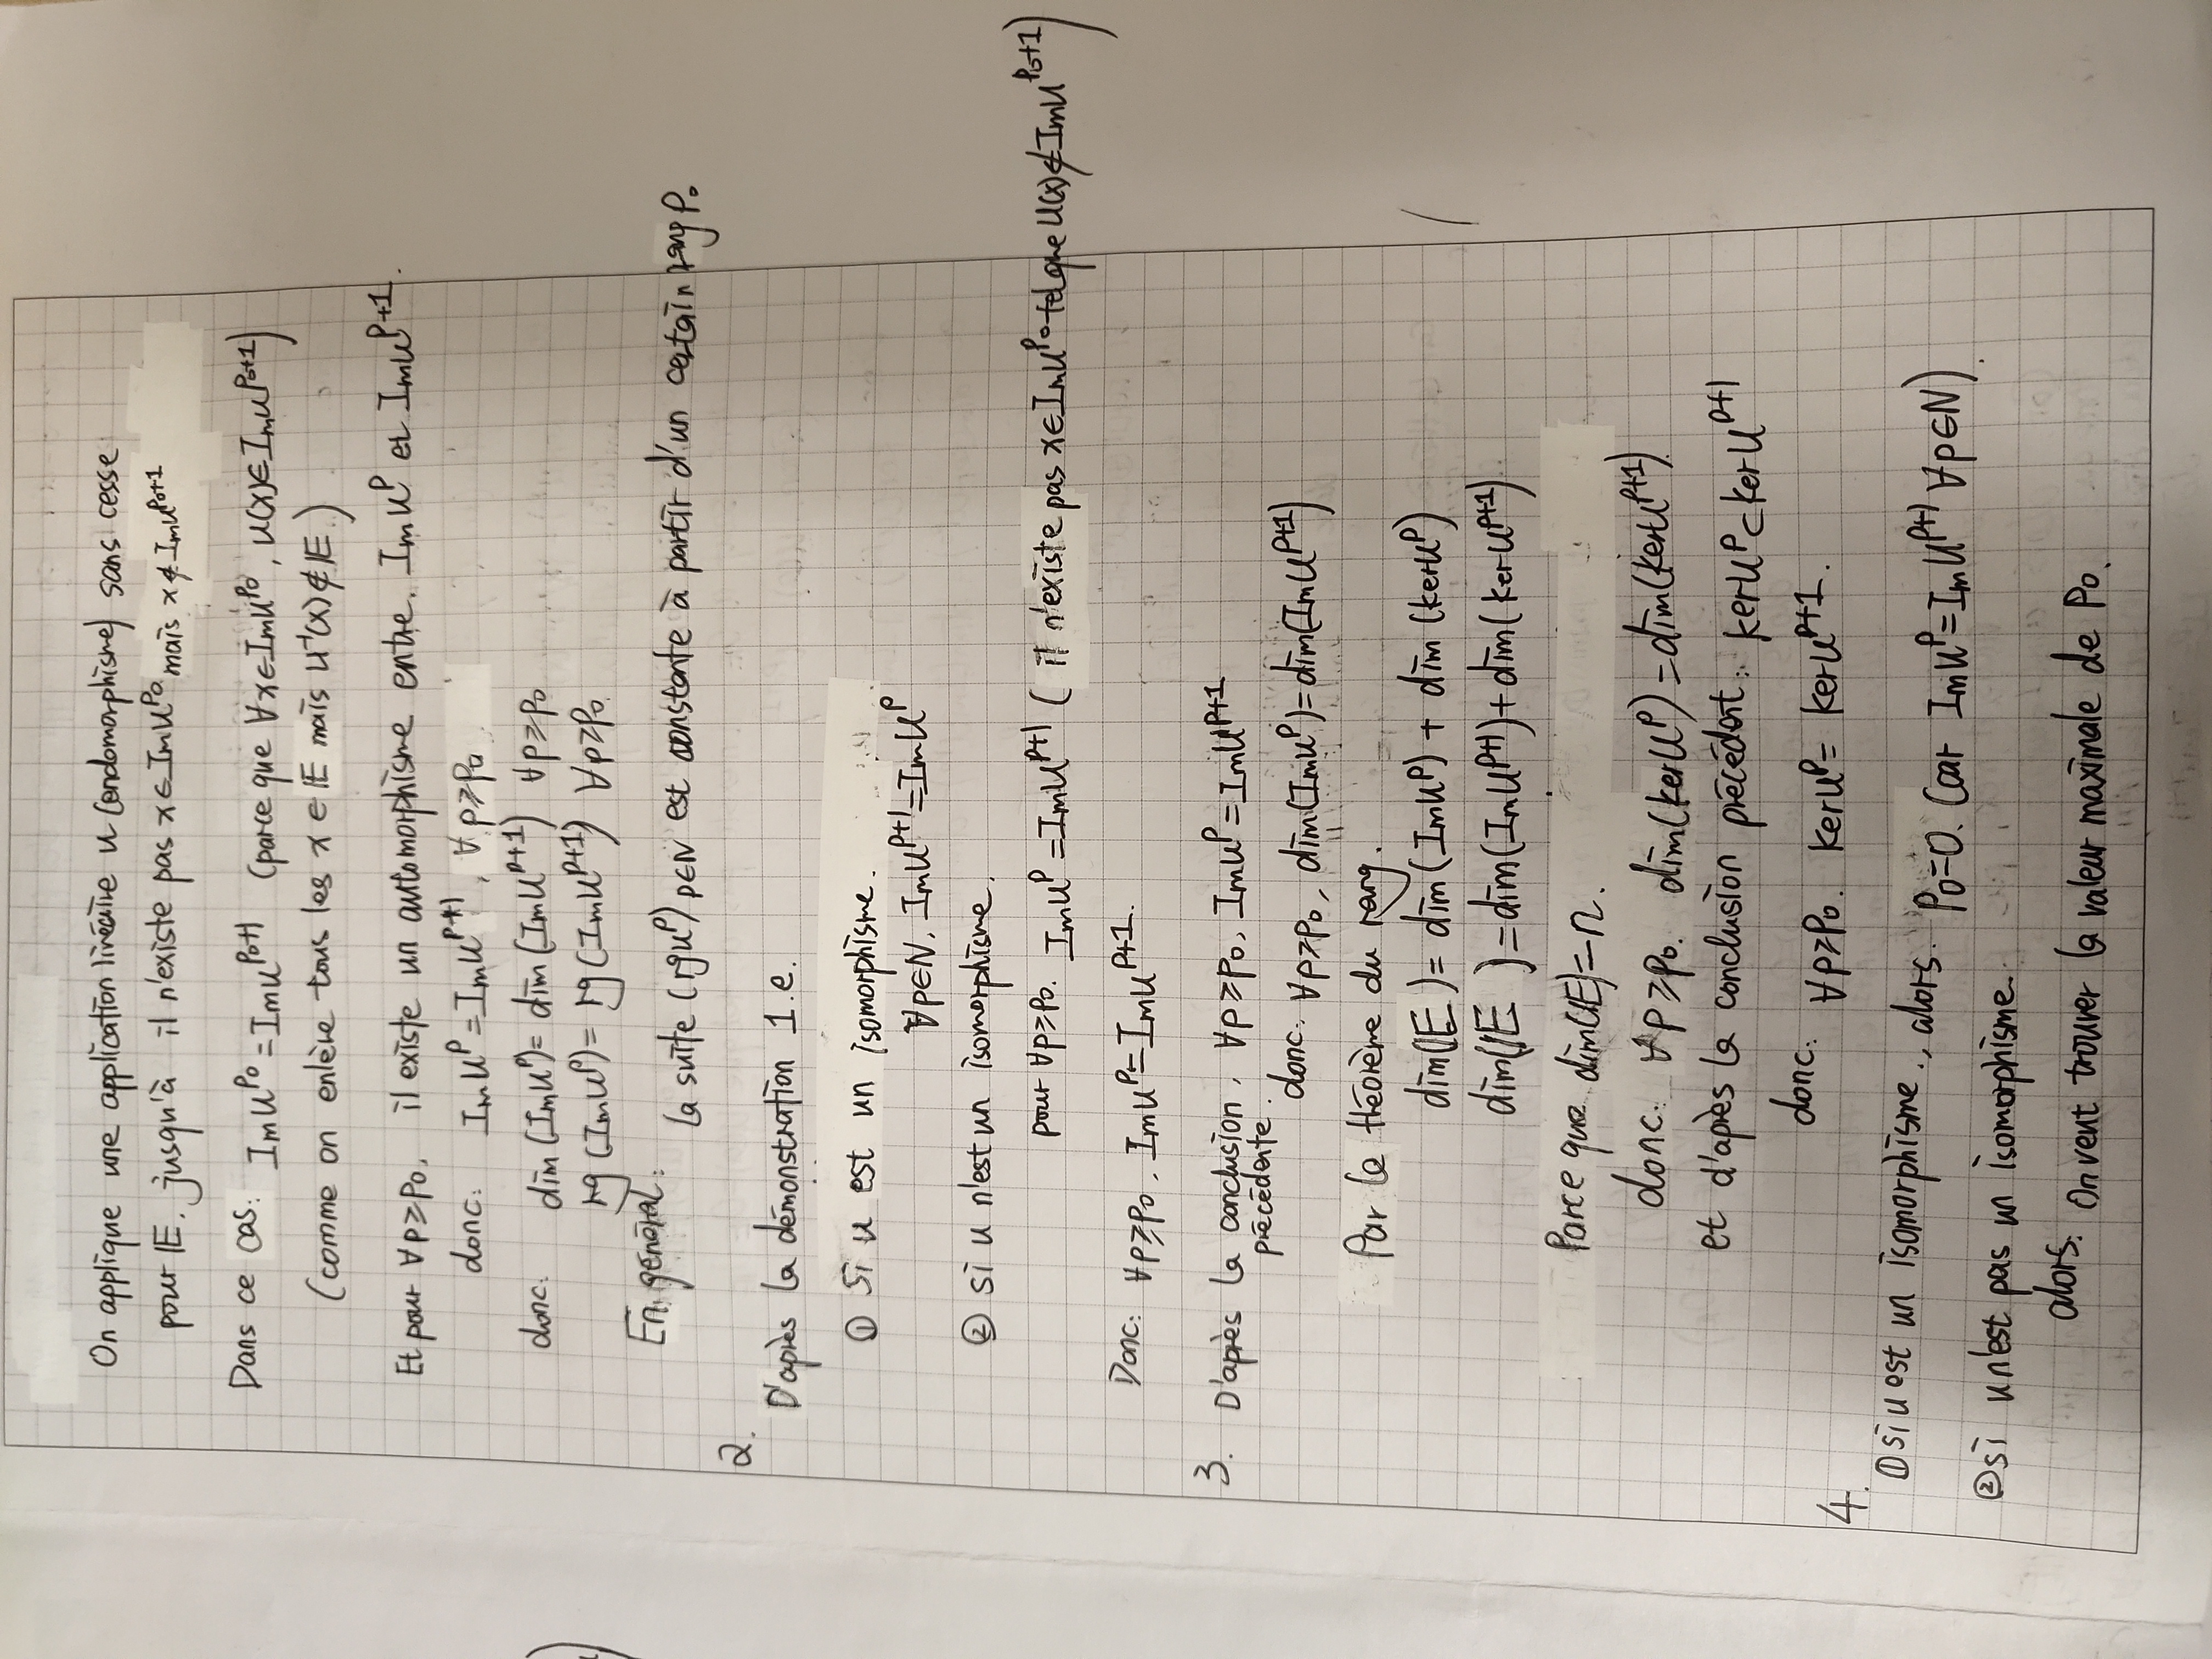 On applique une application linéaire u (endomorphisme) sans cesse
pour IE, jusqu'à il n'existe pas x∈Imu^{P0} mais x∉Imu^{P0+1}
Dans ce cas: Imu^{P0}=Imu^{P0+1} (parce que ∀x∈Imu^{P0}, u(x)∈Imu^{P0+1})
(comme on enlève tous les x∈IE mais u^{-1}(x)∉IE.)
Et pour ∀p≥p0, il existe un automorphisme entre. Imu^p et Imu^{p+1}.
donc: Imu^p=Imu^{p+1}, ∀p≥p0
donc: dim(Imu^p)=dim(Imu^{p+1}) ∀p≥p0
rg(Imu^p)=rg(Imu^{p+1}) ∀p≥p0.
En général:
la suite (rgu^p)p∈N est constante à partir d'un certain rang P0
2.
D'après la démonstration 1.e.
① Si u est un isomorphisme.
∀p∈N, Imu^{p+1}=Imu^p
② si u n'est un isomorphisme.
pour ∀p≥p0. Imu^p=Imu^{p+1} (il n'existe pas x∈Imu^{P0} tel que u(x)∉Imu^{P0+1})
Donc: ∀p≥p0, Imu^p=Imu^{p+1}.
3. D'après la conclusion, ∀p≥p0, Imu^p=Imu^{p+1}
précédente.
donc: ∀p≥p0, dim(Imu^p)=dim(Imu^{p+1})
Par le théorème du rang.
dim(IE)=dim(Imu^p)+dim(keru^p)
dim(IE)=dim(Imu^{p+1})+dim(keru^{p+1})
Parce que dim(IE)=n.
donc: ∀p≥p0. dim(keru^p)=dim(keru^{p+1})
et d'après la conclusion précédent: keru^p⊂keru^{p+1}
donc: ∀p≥p0. keru^p=keru^{p+1}.
4.
① si u est un isomorphisme., alors. P0=0. (car Imu^p=Imu^{p+1} ∀p∈N).
② si u n'est pas un isomorphisme.
alors: On veut trouver la valeur maximale de P0.